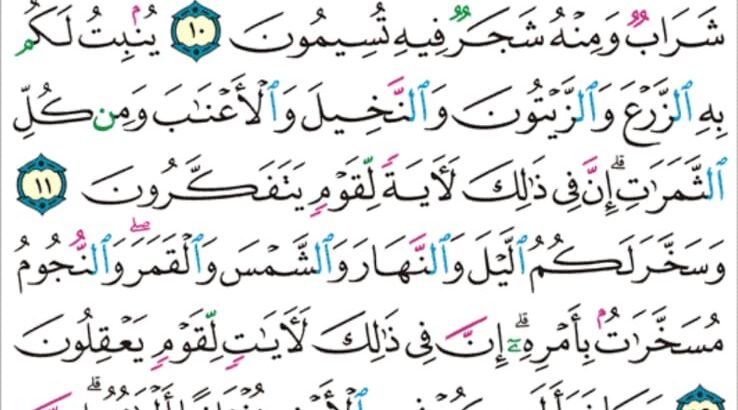 شَرَابٌ وَمِنْهُ شَجَرٌ فِيهِ تُسِيمُونَ ١٠ يُنۢبِتُ لَكُم
بِهِ ٱلزَّرْعَ وَٱلزَّيْتُونَ وَٱلنَّخِيلَ وَٱلْأَعْنَٰبَ وَمِن كُلِّ
ٱلثَّمَرَٰتِ ۗ إِنَّ فِى ذَٰلِكَ لَـَٔايَةً لِّقَوْمٍ يَتَفَكَّرُونَ ١١
وَسَخَّرَ لَكُمُ ٱلَّيْلَ وَٱلنَّهَارَ وَٱلشَّمْسَ وَٱلْقَمَرَ ۖ وَٱلنُّجُومُ
مُسَخَّرَٰتٌۢ بِأَمْرِهِۦٓ ۗ إِنَّ فِى ذَٰلِكَ لَـَٔايَٰتٍ لِّقَوْمٍ يَعْقِلُونَ